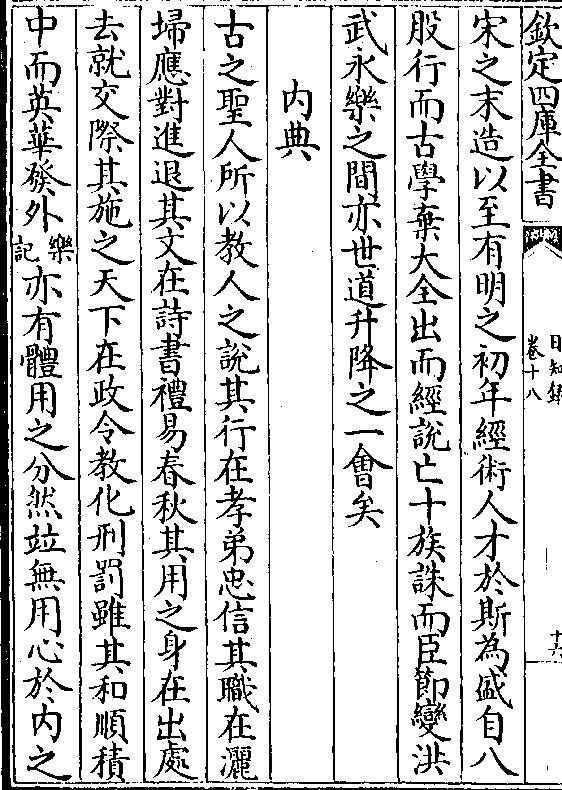 欽定四庫全書
日知錄
卷十八
十六
宋之末造以至有明之初年經術人才於斯為盛自八
股行而古學棄大全出而經說亡十族誅而臣節變洪
武永樂之間亦世道升降之一會矣
內典
古之聖人所以教人之說其行在孝弟忠信其職在灑
埽應對進退其文在詩書禮易春秋其用之身在出處
去就交際其施之天下在政令教化刑罰雖其和順積
中而英華發外樂記亦有體用之分然竝無用心於內之